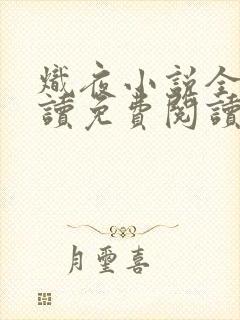 熾夜小說全
讀免費閱讀
月璽喜